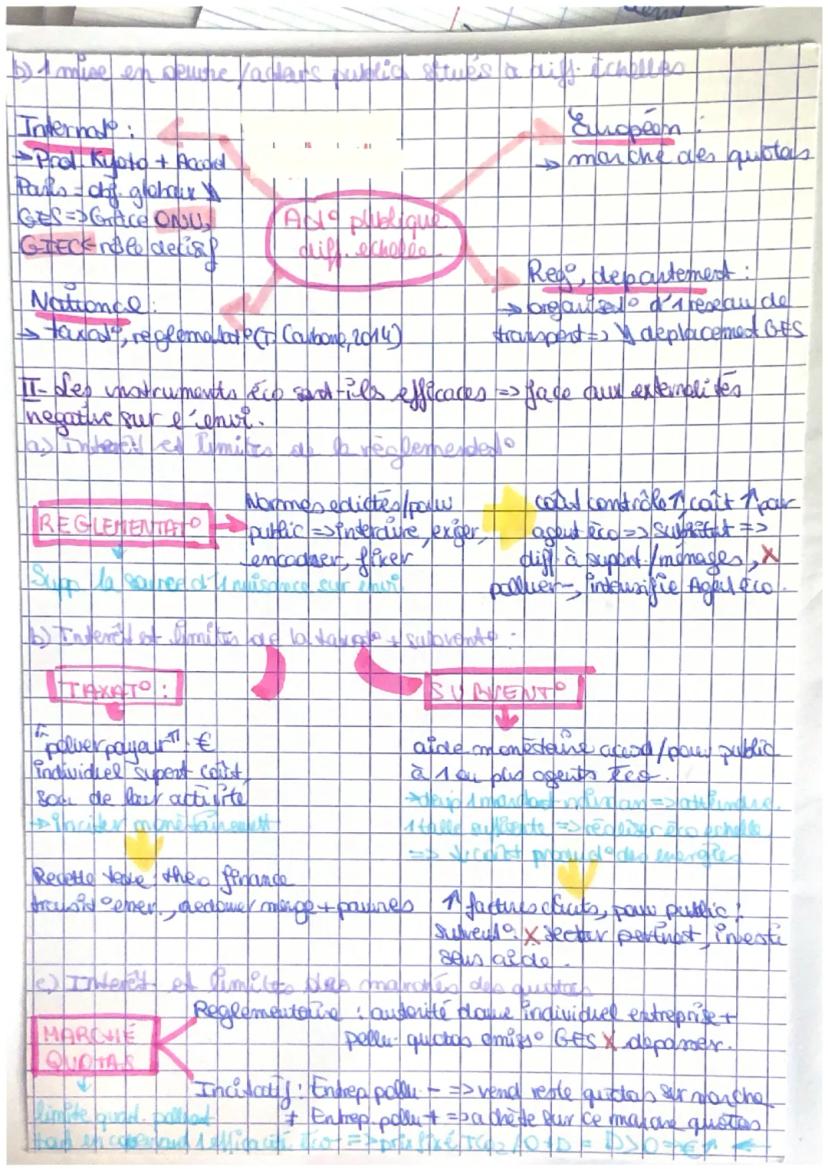 b) 1 mise en oeuvre /acteurs public situés à diff. échelles
Internat° :
→ Prot. Kyoto + Accord
Paris = obj. globaux ↘
GES => Grâce ONU,
GIEC = rôle décisif
Européen :
→ marché des quotas
Act° publique
diff. echelle.
National :
→ taxat°, reglementat° (T. Carbone, 2014)
Reg°, departement :
→ organisat° d'1 reseau de
transport => ↘ déplacement GES
II- Les instruments éco sont-ils efficaces => face aux externalités
negative sur l'envi.
a) Interêt et limites de la réglementat°
REGLEMENTAT°
Supp la source d'1 nuisance sur envi
Normes edictés/pouv
public => interdire, exiger,
encadrer, fixer
coût contrôle ↑, coût ↑ par
agent éco => subsitut =>
diff à support/ménages, X
polluer -, intensifie Agent éco.
b) Interêt et limites de la taxat° + subvent° :
TAXAT° :
"polluer payeur" : €
individuel support coût
soc de leur activité
→ inciter monétairement
Recette taxe : theo finance
transit° ener., dedomer menge + pauvres
SUBVENT°
aide monétaire accord/pouv public
à 1 ou plus agents Éco.
1 taille suffisante => réaliser éco echelle
=> ↓ coût product° des energies
↑ factures clients, pouv public !
subvent° X secteur pertinent, investi
sans aide.
c) Interêt et limites des marchés des quotas
MARCHÉ
QUOTAS
Reglementaire : autorité donne individuel entreprise +
pollu- quotas emiss° GES X depasser.
Incitatif : Entrep. pollu - => vend reste quotas sur marche
+ Entrep. pollu + => achète sur ce marche quotas
limite quant. polluant